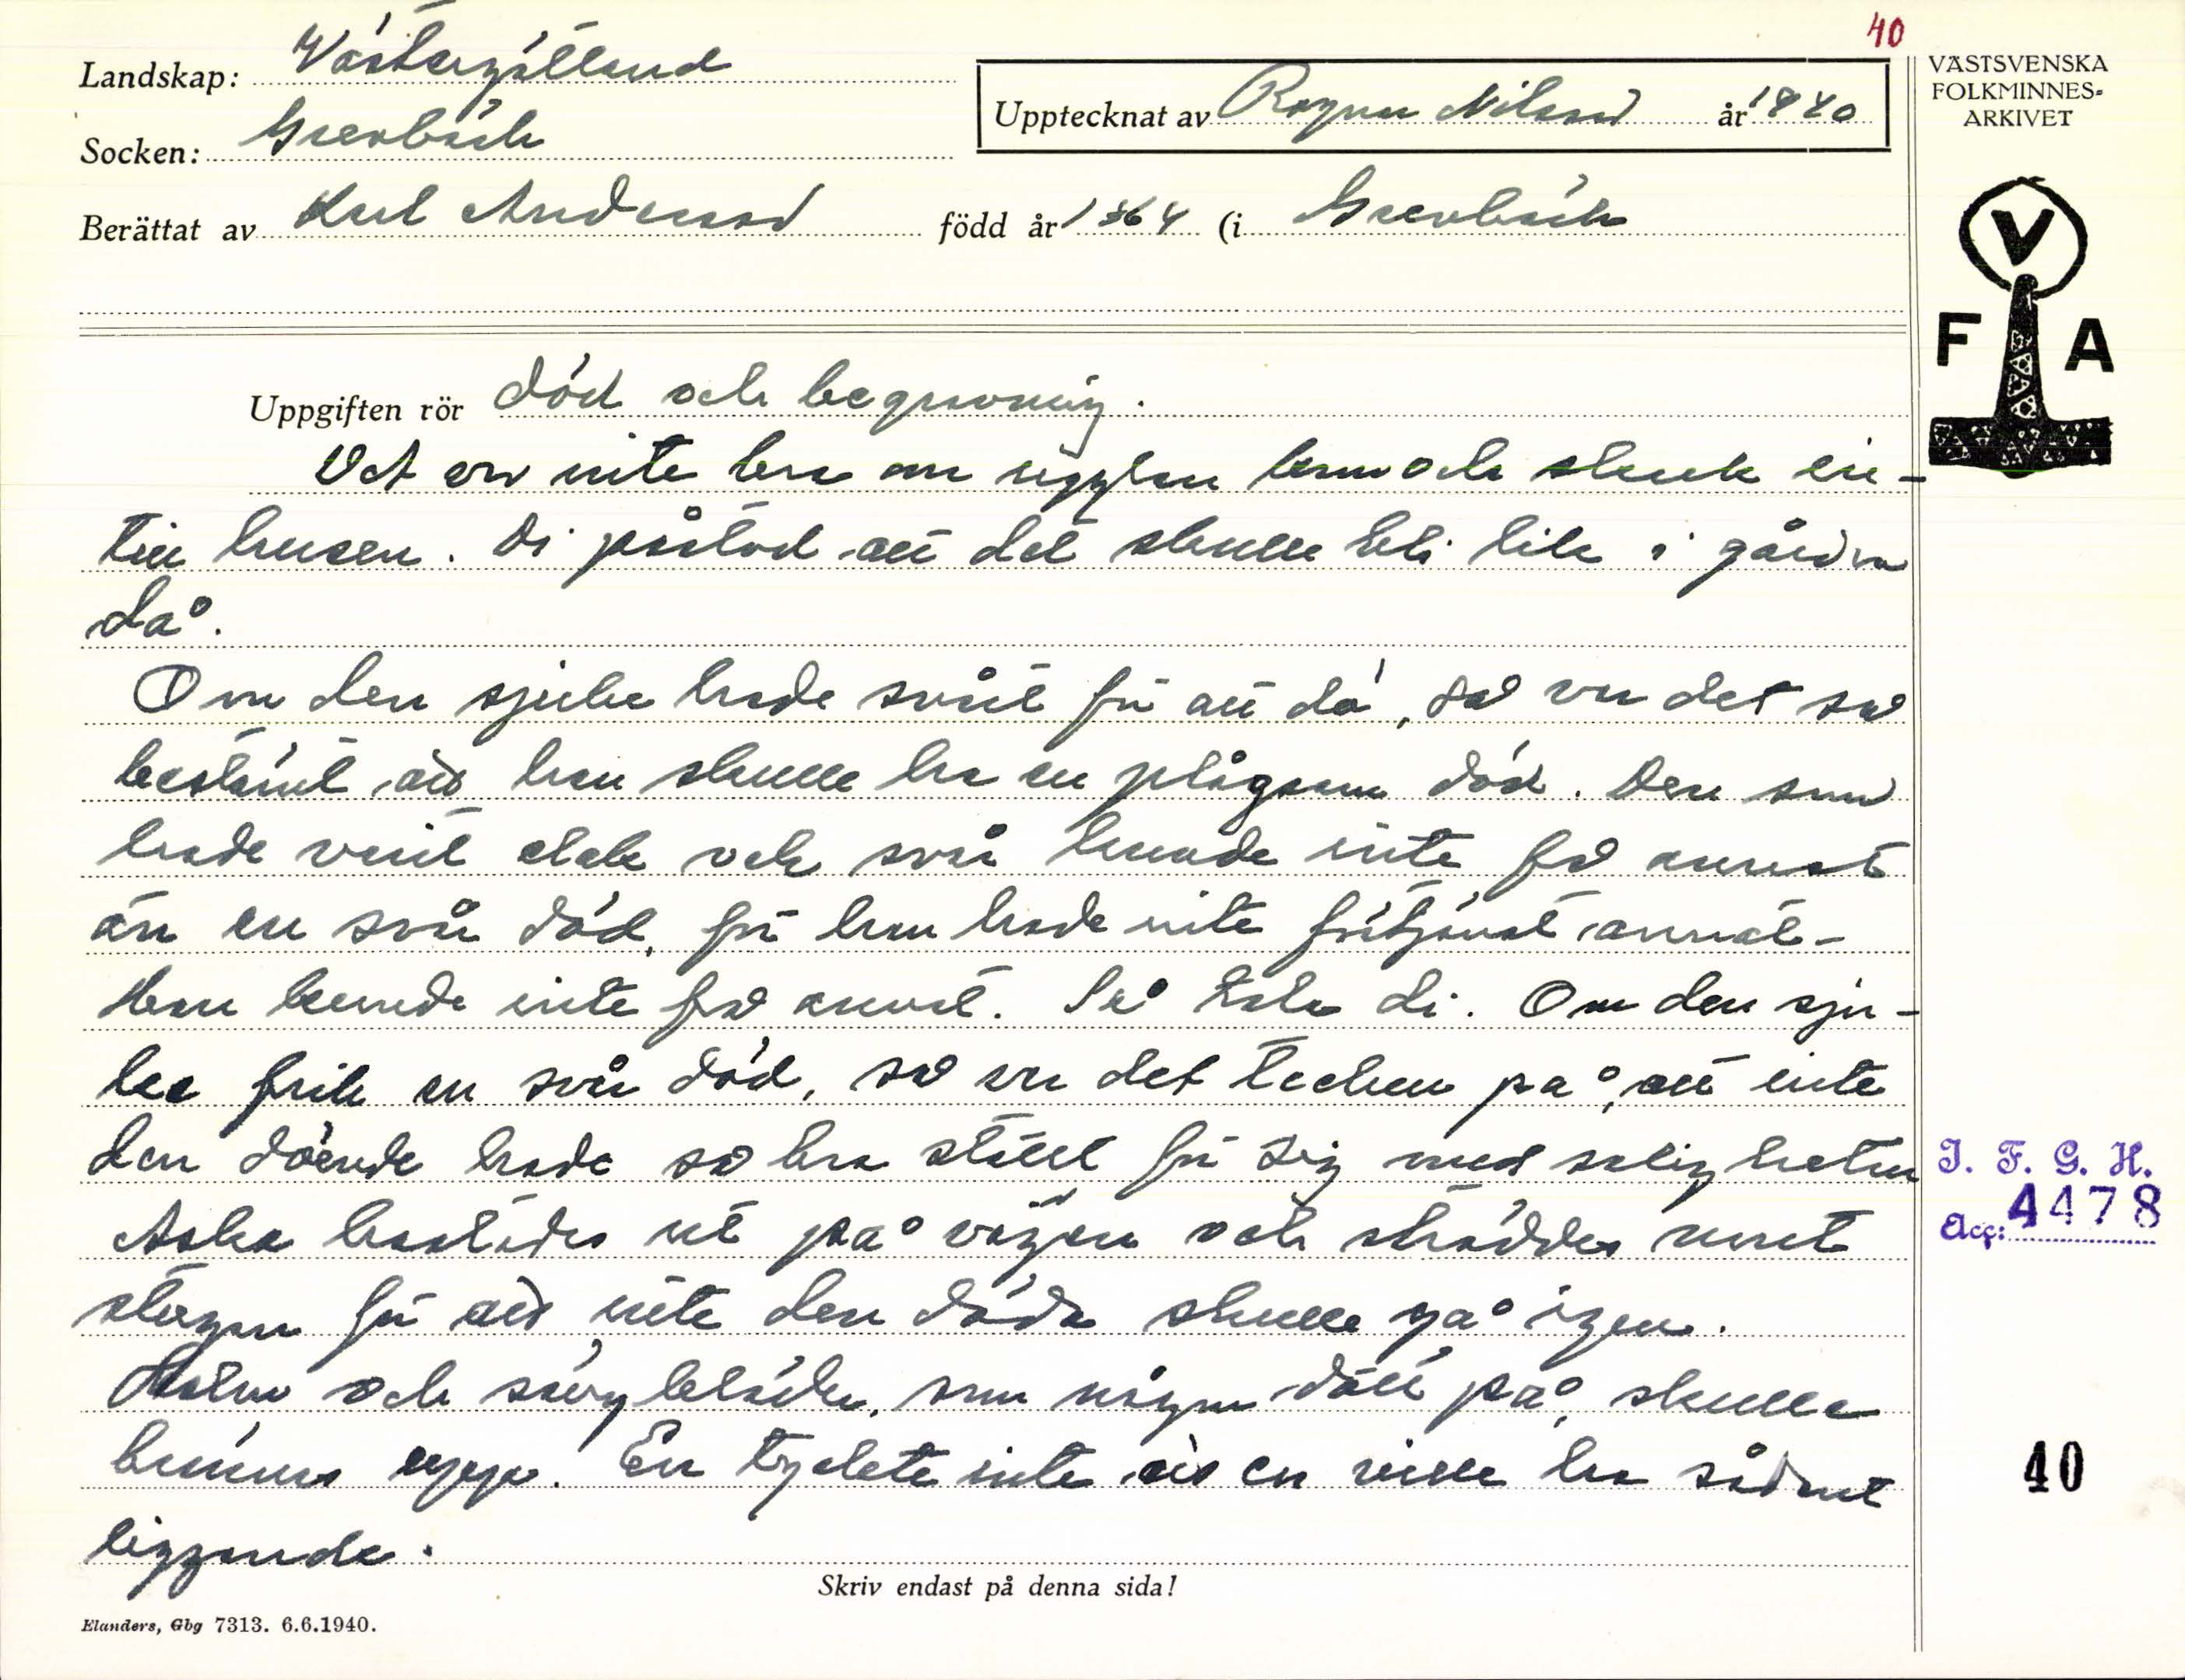 40
Landskap: Västergötland
Upptecknat av Ragnar Nilsson år 1940
VÄSTSVENSKA
FOLKMINNES-
ARKIVET
Socken: Grevbäck
Berättat av Karl Andersson född år 1864 (i Grevbäck
V
F A
Uppgiften rör död och begravning.
Det var inte bra om ugglan kom och skrek in-
till husen. Di påstod att det skulle bli lik i gården
då.
Om den sjuke hade svårt för att dö, så var det så
bestämt att han skulle ha en plågsam död. Den som
hade varit elak och svår kunde inte få annat
än en svår död, för han hade inte förtjänat annat -
Han kunde inte få annat. Så talte di. Om den sju-
ke fick en svår död, så var det tecken på, att inte
den döende hade så bra ställt för sig med saligheten
Aska kastades ut på vägen och ströddes runt
stegen för att inte den döda skulle gå igen.
Halm och sängkläder, som någon dött på, skulle
brännas upp. En tyckte inte att en ville ha sådant
liggande.
Skriv endast på denna sida!
Elanders, Gbg 7313. 6.6.1940.
I. F. G. H.
Acc: 4478
40